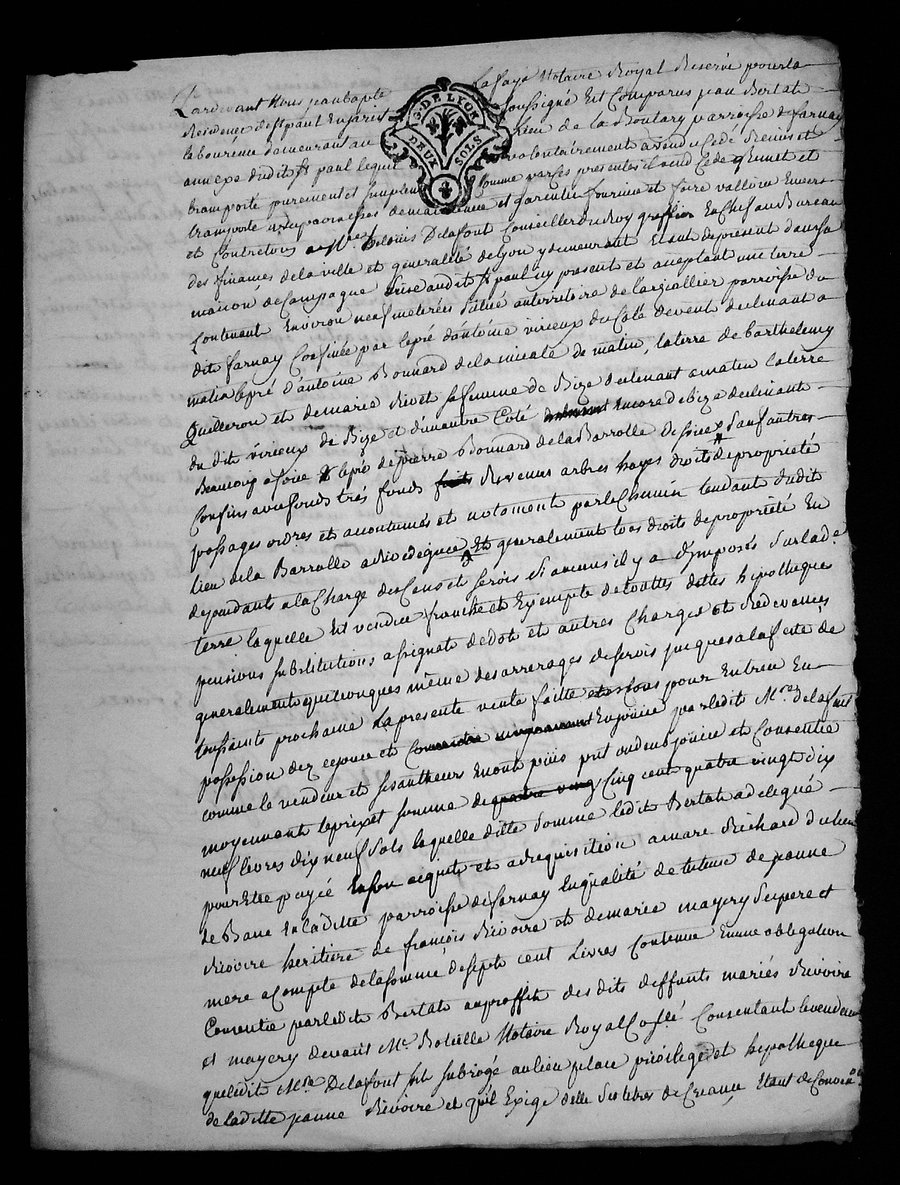 G. DE LYON
DEUX SOLS
Pardevant Nous jean bapte Lafaye Notaire Royal Reservé pour la
Residence de st paul En jarest soussigné Est Comparus jean Bertat
laboureur demeurant au lieu de la Boulary parroisse de farnay
annexe dudit st paul lequel volontairement a vendu Cedé Remis et
transporté purement et simplement Comme par ses presentes il vend Cede Remet et
transporte avec promesses de maintenue et garentie fournir et faire valloir Envers
et Contre tous a Mre Delafont Conseiller du Roy greffier En Chef au Bureau
des finances de la ville et generalité de Lyon y demeurant Etant de present dans sa
maison de Campagne sise audit st paul icy present et aceptant une terre
Contenant Environ neuf meterées situé au territoire de parroisse du
dit farnay Confinée par le pré d'antoine virieux du Coté de vent declinant a
matin le pré d'antoine Bonnard de matin, la terre de Barthelemy
Quilleron et de marie Rivet sa femme de Bize declinant a matin la terre
du dit virieux de Bize et d'un autre Coté encore de bize declinant
Beaucoup a soir le pré de pierre Bonnard de la Barrolle de soir sauf autres
Confins avec fonds tres fonds Revenus arbres hayes droits de proprieté
passages ordres et acoutumés et notament par le Chemin tendant dudit
lieu de la Barrolle a Rivedegier Et generalement tous droits de proprieté En
dependants a la Charge du Cens et servis si aucuns il y a d'imposés sur lade
terre laquelle Est vendue franche et Exempte de touttes dettes hipotheques
pensions substitutions assignats de dots et autres Charges et Redevances
generalement quelconques même des arrerages de servis jusques a la feste de
toussaints prochaine La presente vente faitte pour Entrer En
possession dez ce jour et En jouir par ledit Mre Delafont
comme le vendeur et ses autheurs En ont joüis put ou deub joüir et Consentie
moyennant le prix et somme de Cinq cent quatre vingt dix
neuf livres dix neuf sols laquelle ditte somme ledit Bertat a delegué
pour Etre payée En son aquit et a Requisition a mare Richard du lieu
de Bane En laditte parroisse de farnay En qualité de tuteur de jeanne
Rivoire heritiere de françois Rivoire et de marie mayery ses pere et
mere a Compte de la somme de sept cent Livres Contenue En une obligation
Consentie par ledit Bertat au proffit des dits deffunts mariés Rivoire
et mayery devant Me Bobille Notaire Royal Consentant le vendeur
que ledit Mre Delafont soit subrogé au lieu place privilege et hipotheque
de laditte jeanne Rivoire et qu'il Exige d'elle ses titres de Creance Etant de Conven